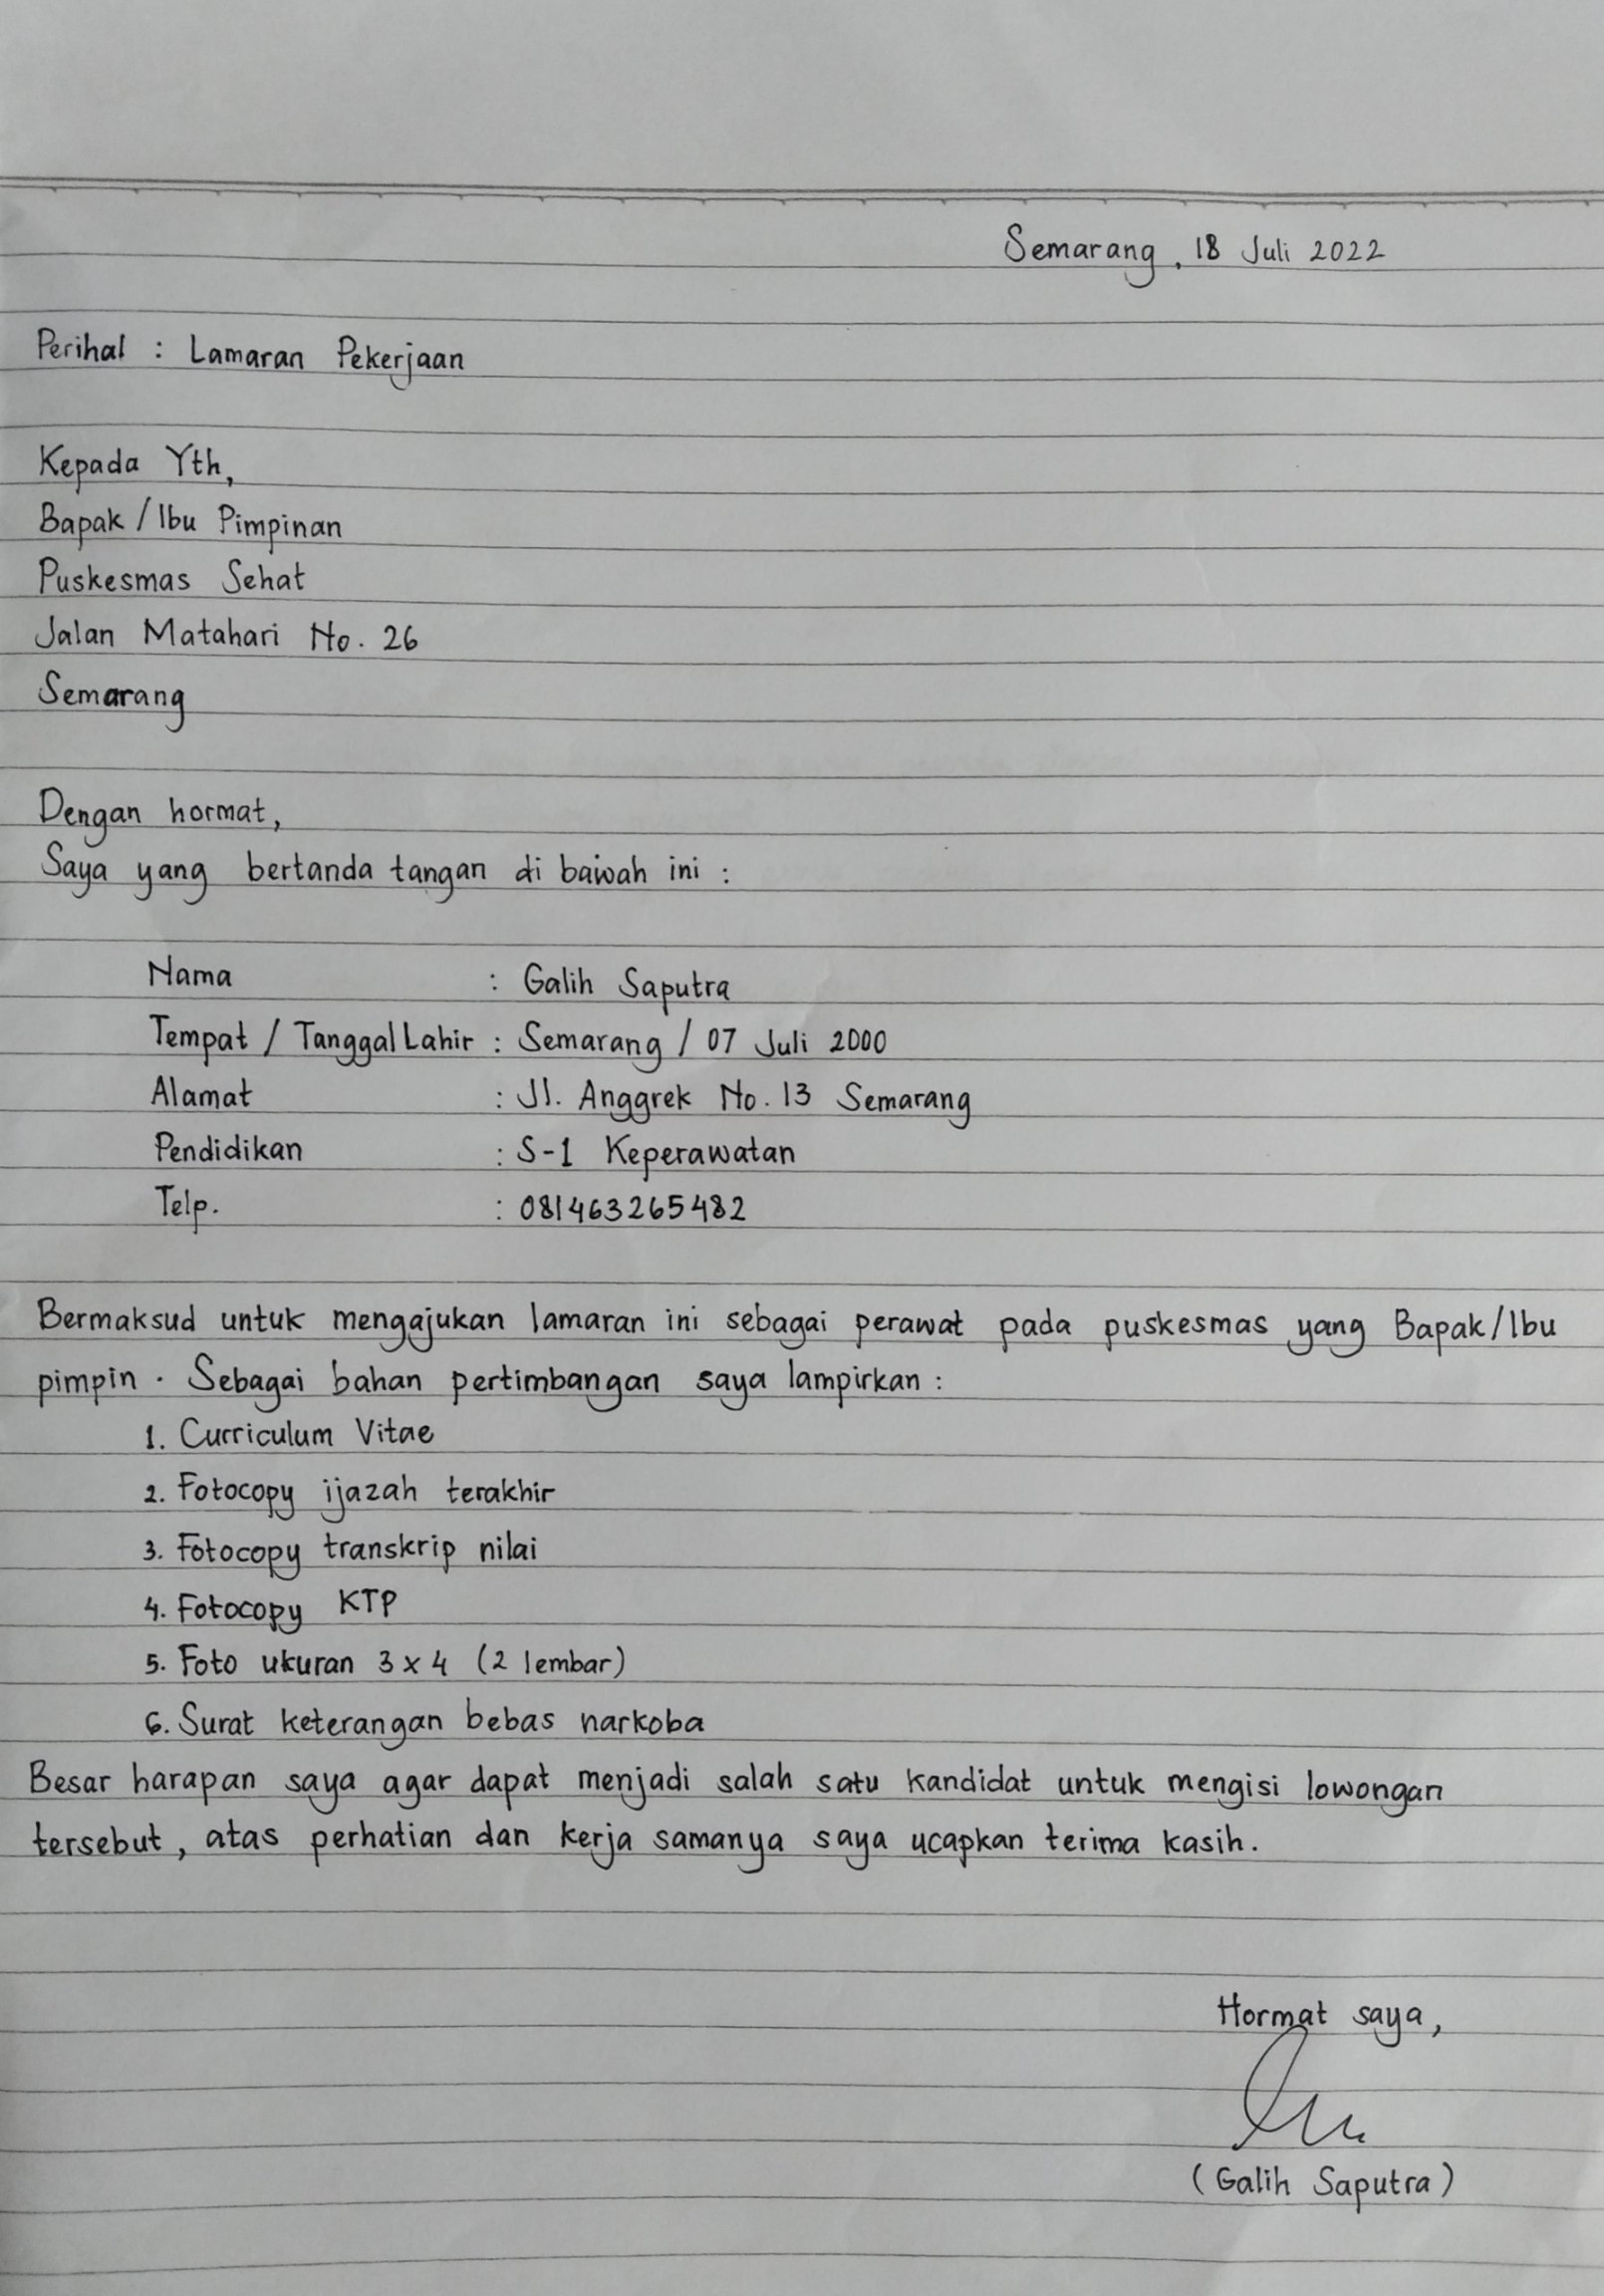 Semarang, 18 Juli 2022
Perihal : Lamaran Pekerjaan
Kepada Yth,
Bapak / Ibu Pimpinan
Puskesmas Sehat
Jalan Matahari No. 26
Semarang
Dengan hormat,
Saya yang bertanda tangan di bawah ini :
Nama : Galih Saputra
Tempat / Tanggal Lahir : Semarang / 07 Juli 2000
Alamat : Jl. Anggrek No. 13 Semarang
Pendidikan : S-1 Keperawatan
Telp. : 081463265482
Bermaksud untuk mengajukan lamaran ini sebagai perawat pada puskesmas yang Bapak/Ibu
pimpin. Sebagai bahan pertimbangan saya lampirkan :
1. Curriculum Vitae
2. Fotocopy ijazah terakhir
3. Fotocopy transkrip nilai
4. Fotocopy KTP
5. Foto ukuran 3 x 4 (2 lembar)
6. Surat keterangan bebas narkoba
Besar harapan saya agar dapat menjadi salah satu kandidat untuk mengisi lowongan
tersebut, atas perhatian dan kerja samanya saya ucapkan terima kasih.
Hormat saya,
(Galih Saputra)